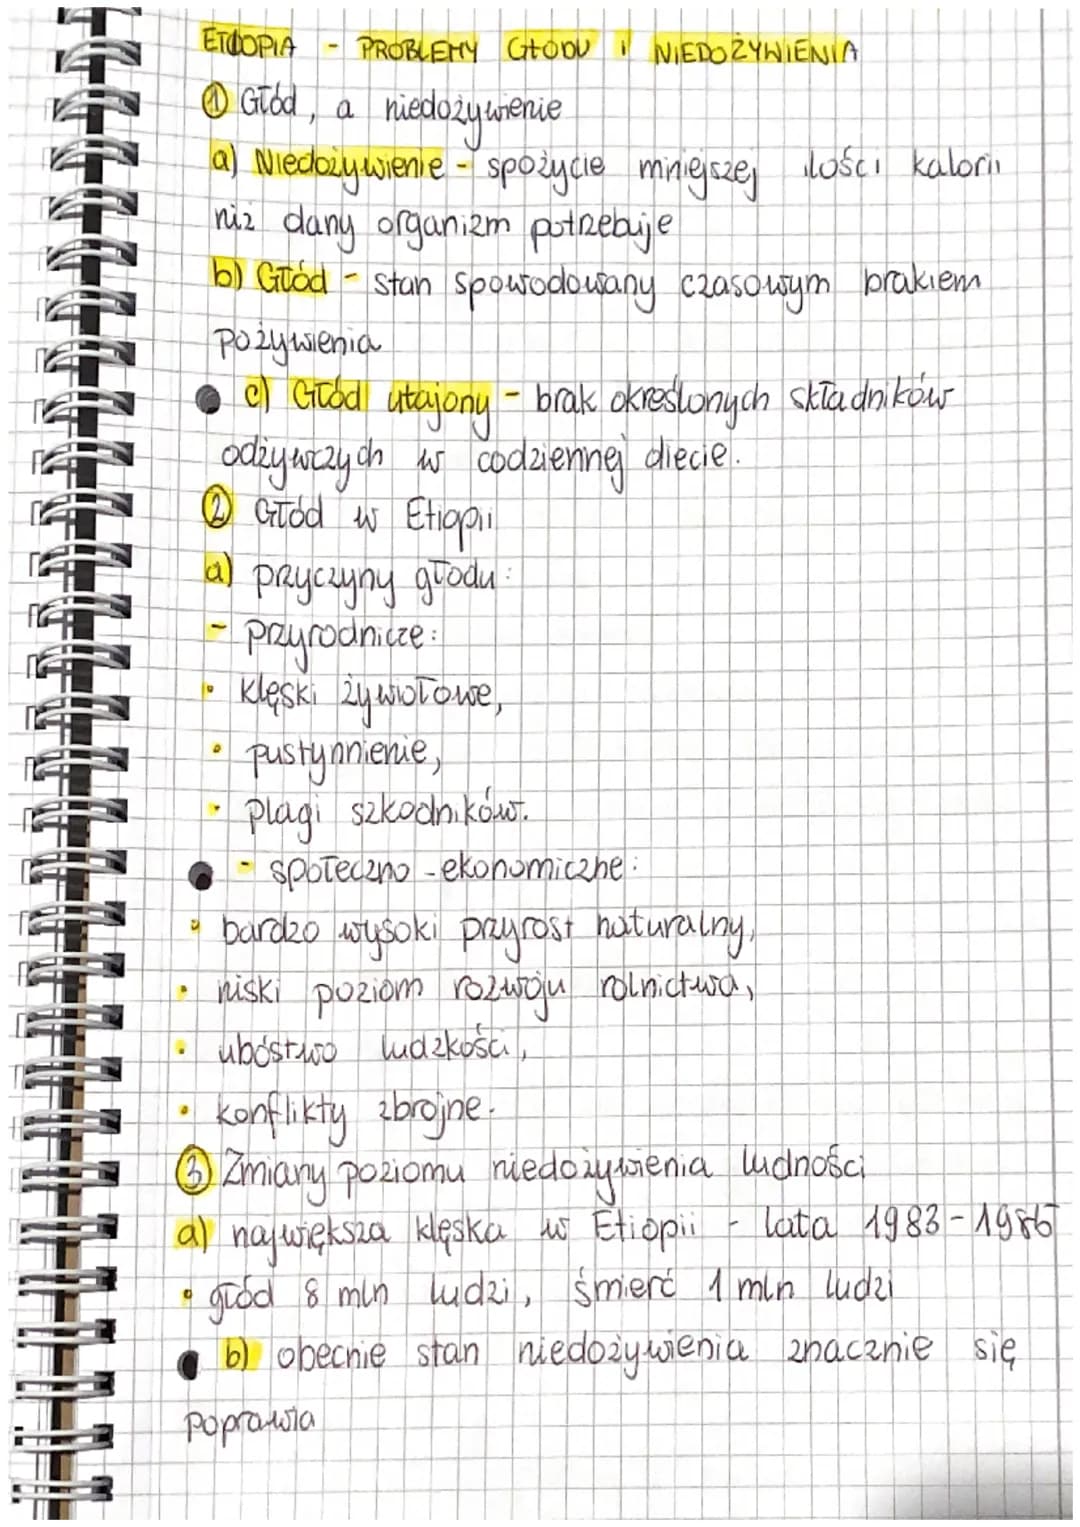 ETIOPIA - PROBLEMY GŁODU I NIEDOŻYWIENIA
① Głód, a niedożywienie
a) Niedożywienie - spożycie mniejszej ilości kalorii
niż dany organizm potrzebuje
b) Głód - stan spowodowany czasowym brakiem
pożywienia
c) Głód utajony - brak określonych składników
odżywczych w codziennej diecie.
② Głód w Etiopii
a) przyczyny głodu:
- przyrodnicze:
• klęski żywiołowe,
• pustynnienie,
• plagi szkodników.
- społeczno-ekonomiczne:
• bardzo wysoki przyrost naturalny,
• niski poziom rozwoju rolnictwa,
• ubóstwo ludzkości,
• konflikty zbrojne.
③ Zmiany poziomu niedożywienia ludności
a) największa klęska w Etiopii - lata 1983-1985
• głód 8 mln ludzi, śmierć 1 mln ludzi
b) obecnie stan niedożywienia znacznie się
poprawia